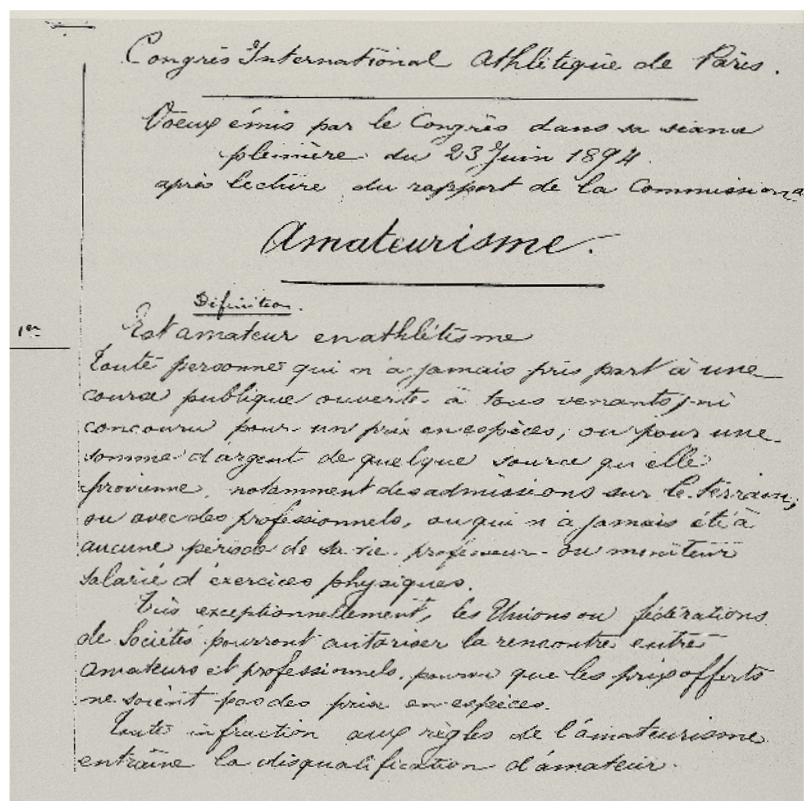 Congrès International Athlétique de Paris.
Voeux émis par le Congrès dans sa séance
plenière du 23 Juin 1894.
après lecture du rapport de la Commission
Amateurisme.
Définition.
1er
Est amateur en athlétisme
toute personne qui n'a jamais pris part à une
course publique ouverte à tous venants, ni
concouru pour un prix en espèces, ou pour une
somme d'argent de quelque source qu'elle
provienne, notamment des admissions sur le terrain,
ou avec des professionnels, ou qui n'a jamais été à
aucune période de sa vie professeur ou moniteur
salarié d'exercices physiques.
Très exceptionnellement, les Unions ou fédérations
de Sociétés pourront autoriser la rencontre entre
amateurs et professionnels, pourvu que les prix offerts
ne soient pas des prix en espèces.
Toute infraction aux règles de l'amateurisme
entraîne la disqualification d'amateur.